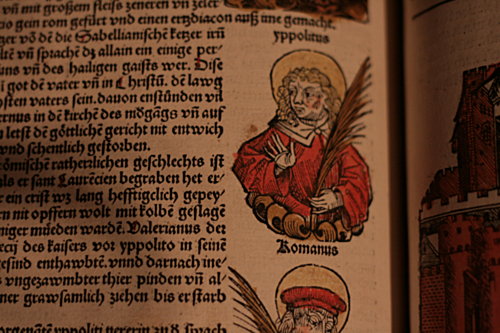 vñ mit großem fleiss zeneren vñ zeler
cio gein rom gefürt vnd einen ertzdiacon auß ime gemacht.
tzer võ dẽ die Sabellianische ketzer irñ
elt vñ sprachẽ dz allain ein einige per-
uns vñ des hailigen gaists wer. Dise
i got dẽ vater vñ in Christũ. dẽ lawg
hsten vaters sein. dauon enstũnden vil
ernus in dẽ kirchẽ des mõgãgs vñ auf
letst dẽ götlichẽ gericht nit entwich
vnd schentlich gestorben.
römischẽ ratherzlichen geschlechts ist
als er sant Laurẽcien begraben het er-
er ein crist wz lang hefftigclich gepey-
en nit opffern wolt mit kolbẽ geslagẽ
iniger mũeden wardẽ. Valerianus der
ecij des kaisers vor yppolito in seinẽ
gesind enthawbtẽ. vnnd darnach ine
s vngezawmbter thier pinden vñ al-
ner grawsamlich ziehen bis er starb
yppoliti
yppolitus
Romanus